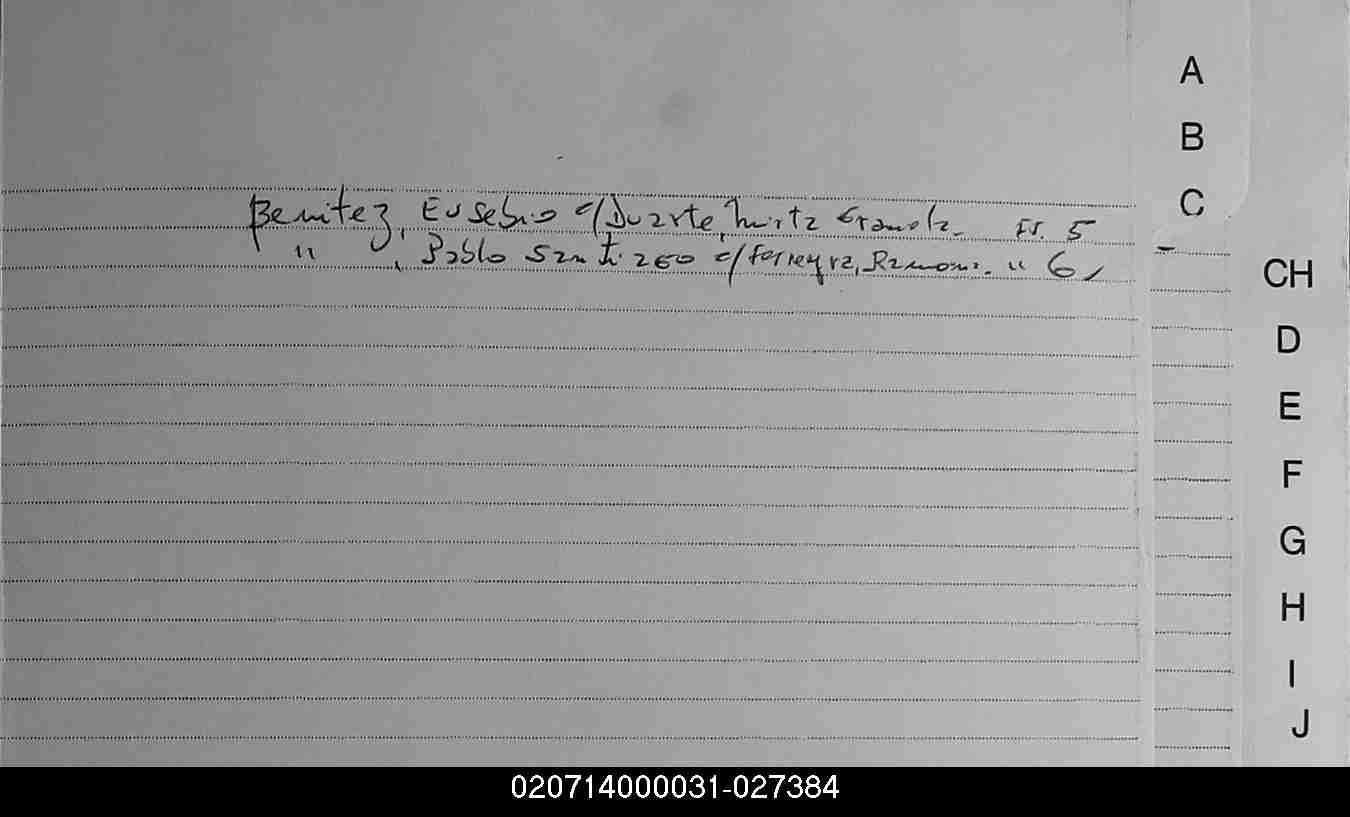 A
B
C
Benitez, Eusebio c/ Duarte, Mirta Graciela. Fs. 5
" , Pablo Santiago c/ Ferreyra, Ramona. " 6
CH
D
E
F
G
H
I
J
020714000031-027384